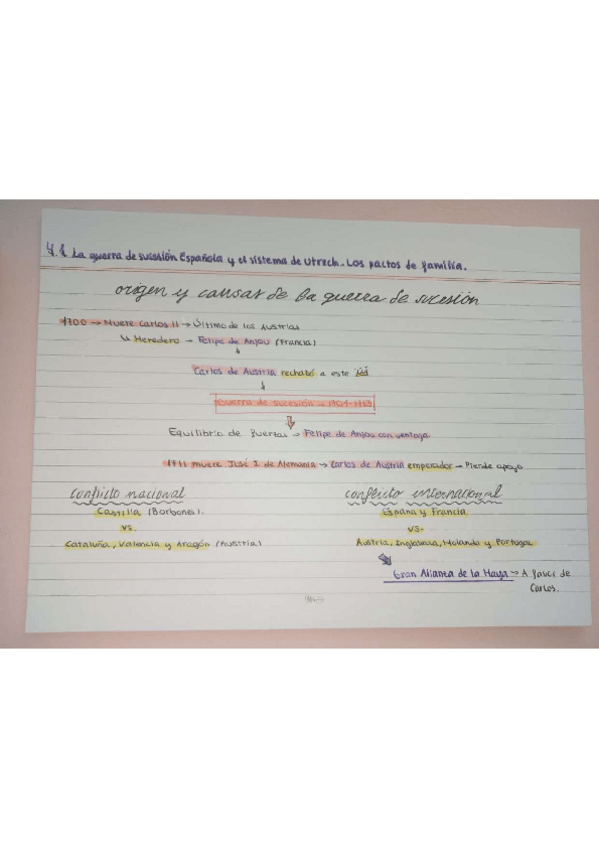 4.1 La guerra de sucesión Española y el sistema de Utrech. Los pactos de familia.
origen y causas de la guerra de sucesión
1700 → Muere Carlos II → Último de los Austrias
↳ Heredero → Felipe de Anjou (Francia)
↓
Carlos de Austria rechazó a este
↓
Guerra de sucesión → 1701-1713
Equilibrio de fuerzas → Felipe de Anjou con ventaja
1711 muere José I de Alemania → Carlos de Austria emperador → Pierde apoyo
conflicto nacional
Castilla (Borbones).
vs.
Cataluña, Valencia y Aragón (Austria)
conflicto internacional
España y Francia
vs.
Austria, Inglaterra, Holanda y Portugal
Gran Alianza de la Haya → A favor de
Carlos.